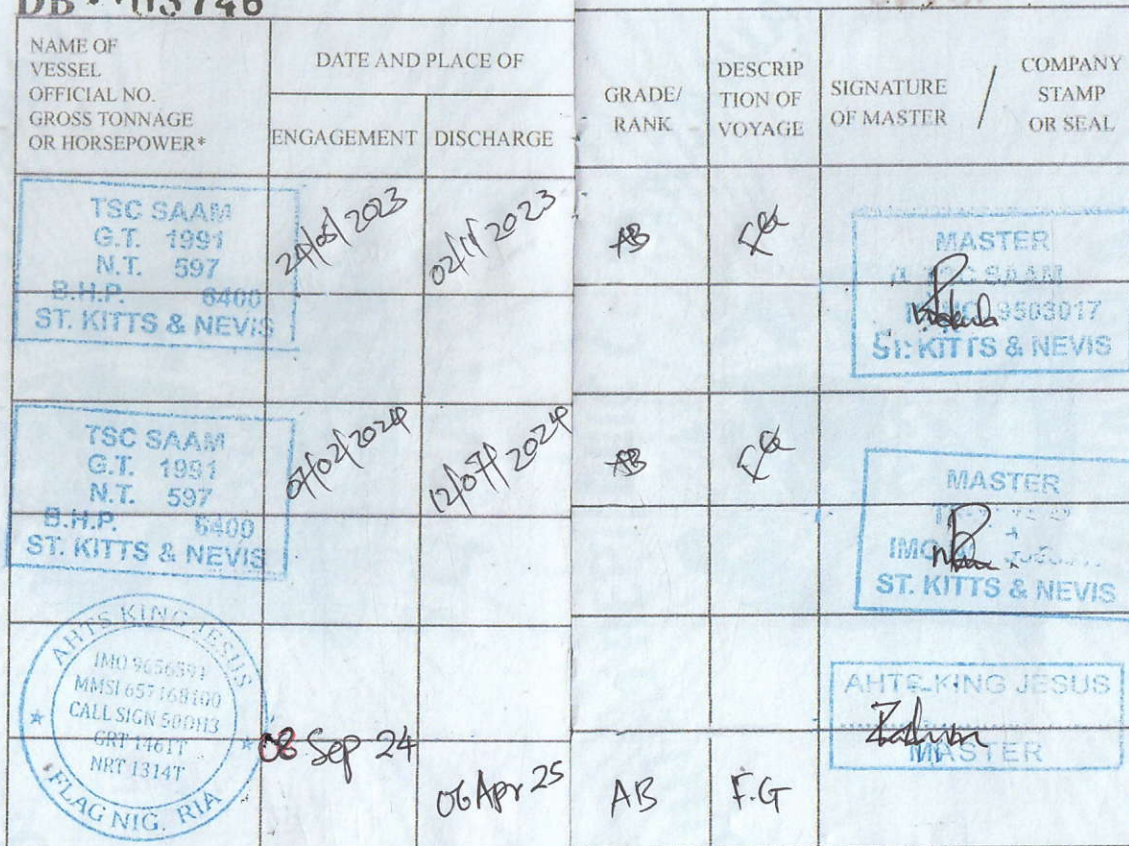 NAME OF
VESSEL
OFFICIAL NO.
GROSS TONNAGE
OR HORSEPOWER*
DATE AND PLACE OF
ENGAGEMENT
DISCHARGE
GRADE/
RANK
DESCRIP
TION OF
VOYAGE
SIGNATURE
OF MASTER
/
COMPANY
STAMP
OR SEAL
TSC SAAM
G.T. 1991
N.T. 597
B.H.P. 6400
ST. KITTS & NEVIS
24/05/2023
02/11/2023
AB
FG
MASTER
SAAM
9503017
ST. KITTS & NEVIS
TSC SAAM
G.T. 1991
N.T. 597
B.H.P. 6400
ST. KITTS & NEVIS
07/02/2024
12/07/2024
AB
FG
MASTER
IMO
ST. KITTS & NEVIS
AHTS KING JESUS
IMO 9656591
MMSI 657168100
CALL SIGN 5ODH3
GRT 1461T
NRT 1314T
FLAG NIG. RIA
08 Sep 24
06 Apr 25
AB
F.G
AHTS-KING JESUS
MASTER